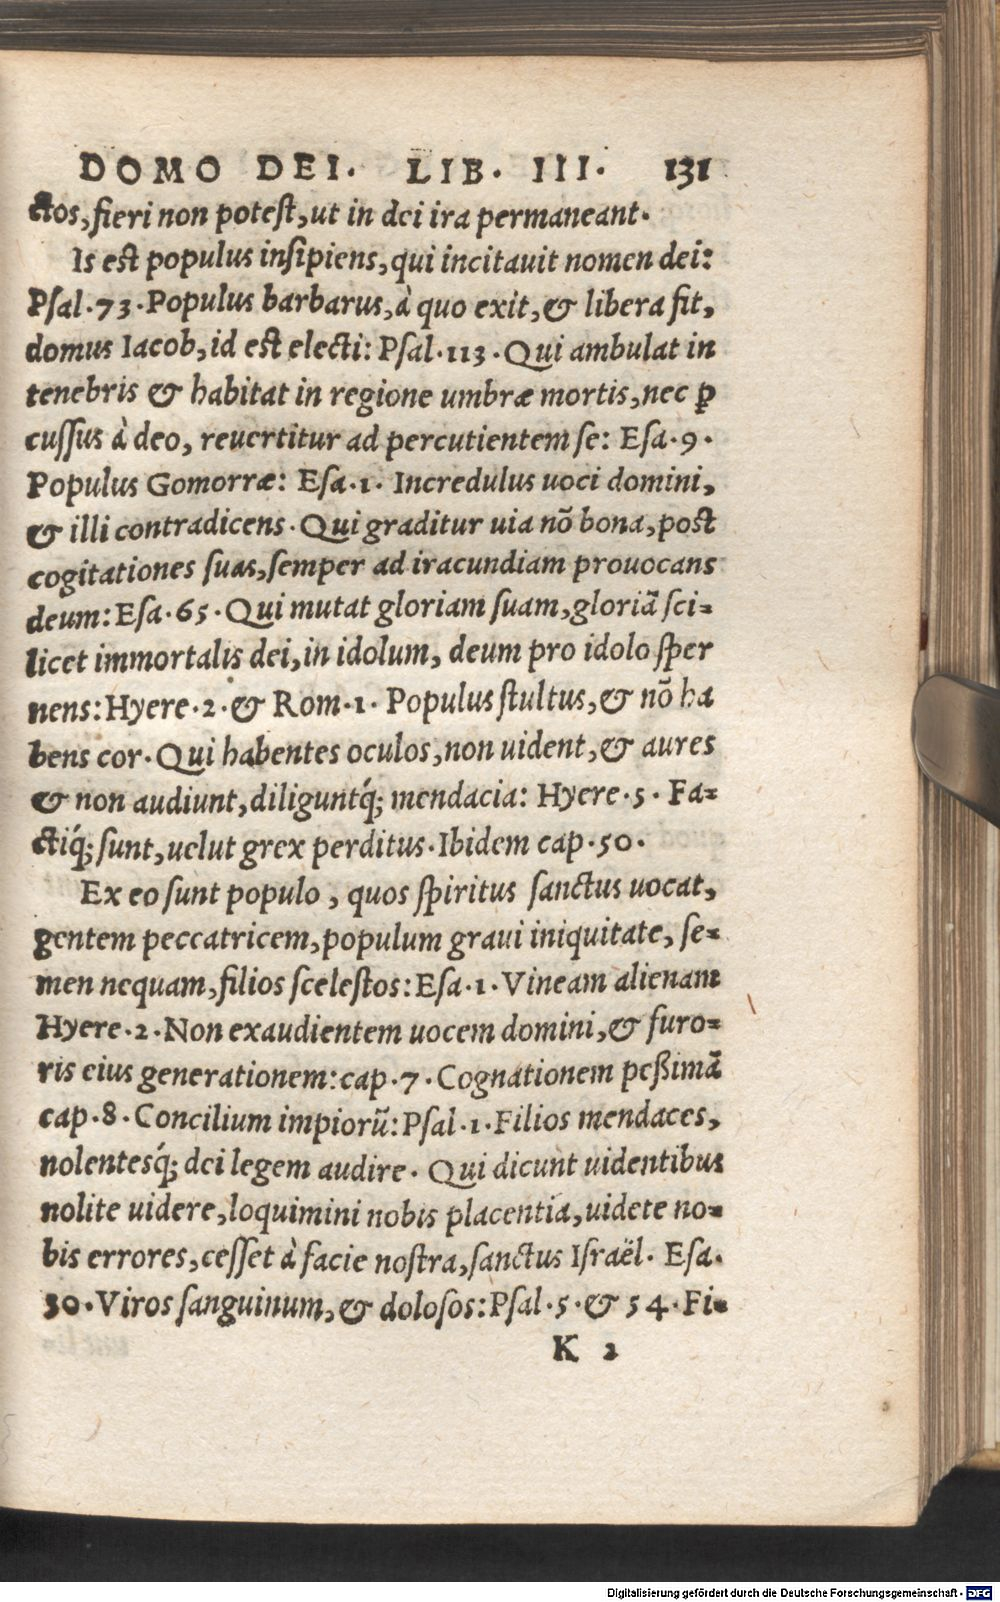 DOMO DEI. LIB. III. 131
ctos, fieri non potest, ut in dei ira permaneant.
Is est populus insipiens, qui incitauit nomen dei:
Psal. 73. Populus barbarus, à quo exit, & libera fit,
domus Iacob, id est electi: Psal. 113. Qui ambulat in
tenebris & habitat in regione umbræ mortis, nec ꝑ
cussus à deo, reuertitur ad percutientem se: Esa. 9.
Populus Gomorræ: Esa. 1. Incredulus uoci domini,
& illi contradicens. Qui graditur uia nõ bona, post
cogitationes suas, semper ad iracundiam prouocans
deum: Esa. 65. Qui mutat gloriam suam, gloriã sci-
licet immortalis dei, in idolum, deum pro idolo sper
nens: Hyere. 2. & Rom. 1. Populus stultus, & nõ ha
bens cor. Qui habentes oculos, non uident, & aures
& non audiunt, diliguntq́; mendacia: Hyere. 5. Fa-
ctiq́; sunt, uelut grex perditus. Ibidem cap. 50.
Ex eo sunt populo, quos spiritus sanctus uocat,
gentem peccatricem, populum graui iniquitate, se-
men nequam, filios scelestos: Esa. 1. Vineam alienam
Hyere. 2. Non exaudientem uocem domini, & furo-
ris eius generationem: cap. 7. Cognationem peßimã
cap. 8. Concilium impiorũ: Psal. 1. Filios mendaces,
nolentesq́; dei legem audire. Qui dicunt uidentibus
nolite uidere, loquimini nobis placentia, uidete no-
bis errores, cesset à facie nostra, sanctus Israël. Esa.
30. Viros sanguinum, & dolosos: Psal. 5. & 54. Fi-
K 2
Digitalisierung gefördert durch die Deutsche Forschungsgemeinschaft - DFG